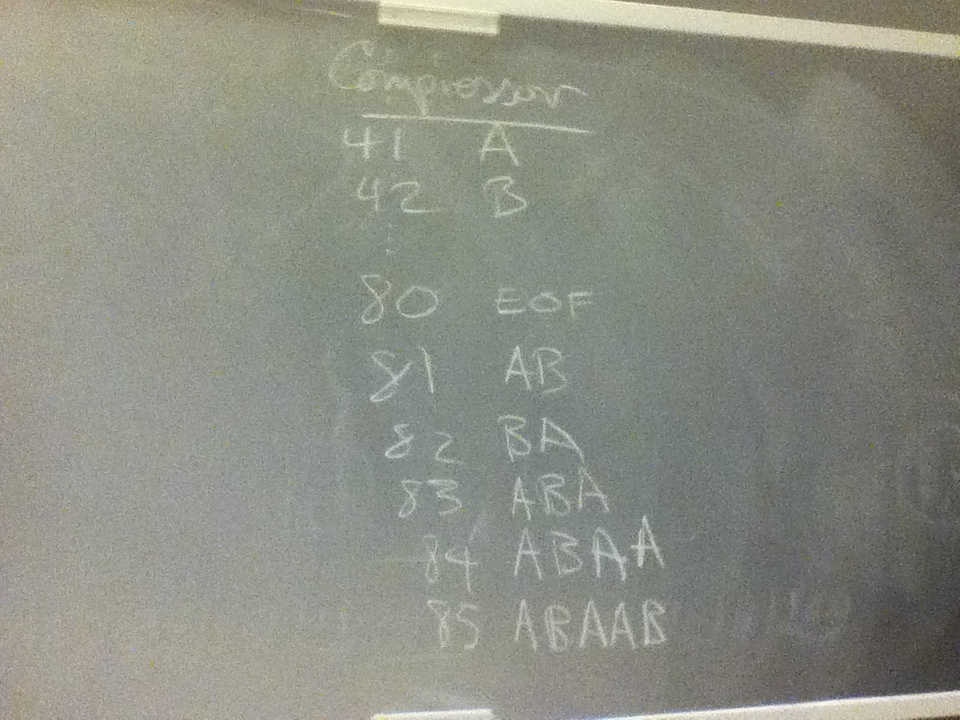 Compressor
41 A
42 B
80 EOF
81 AB
82 BA
83 ABA
84 ABAA
85 ABAAB